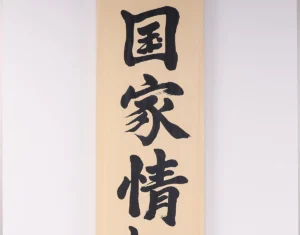 国家情